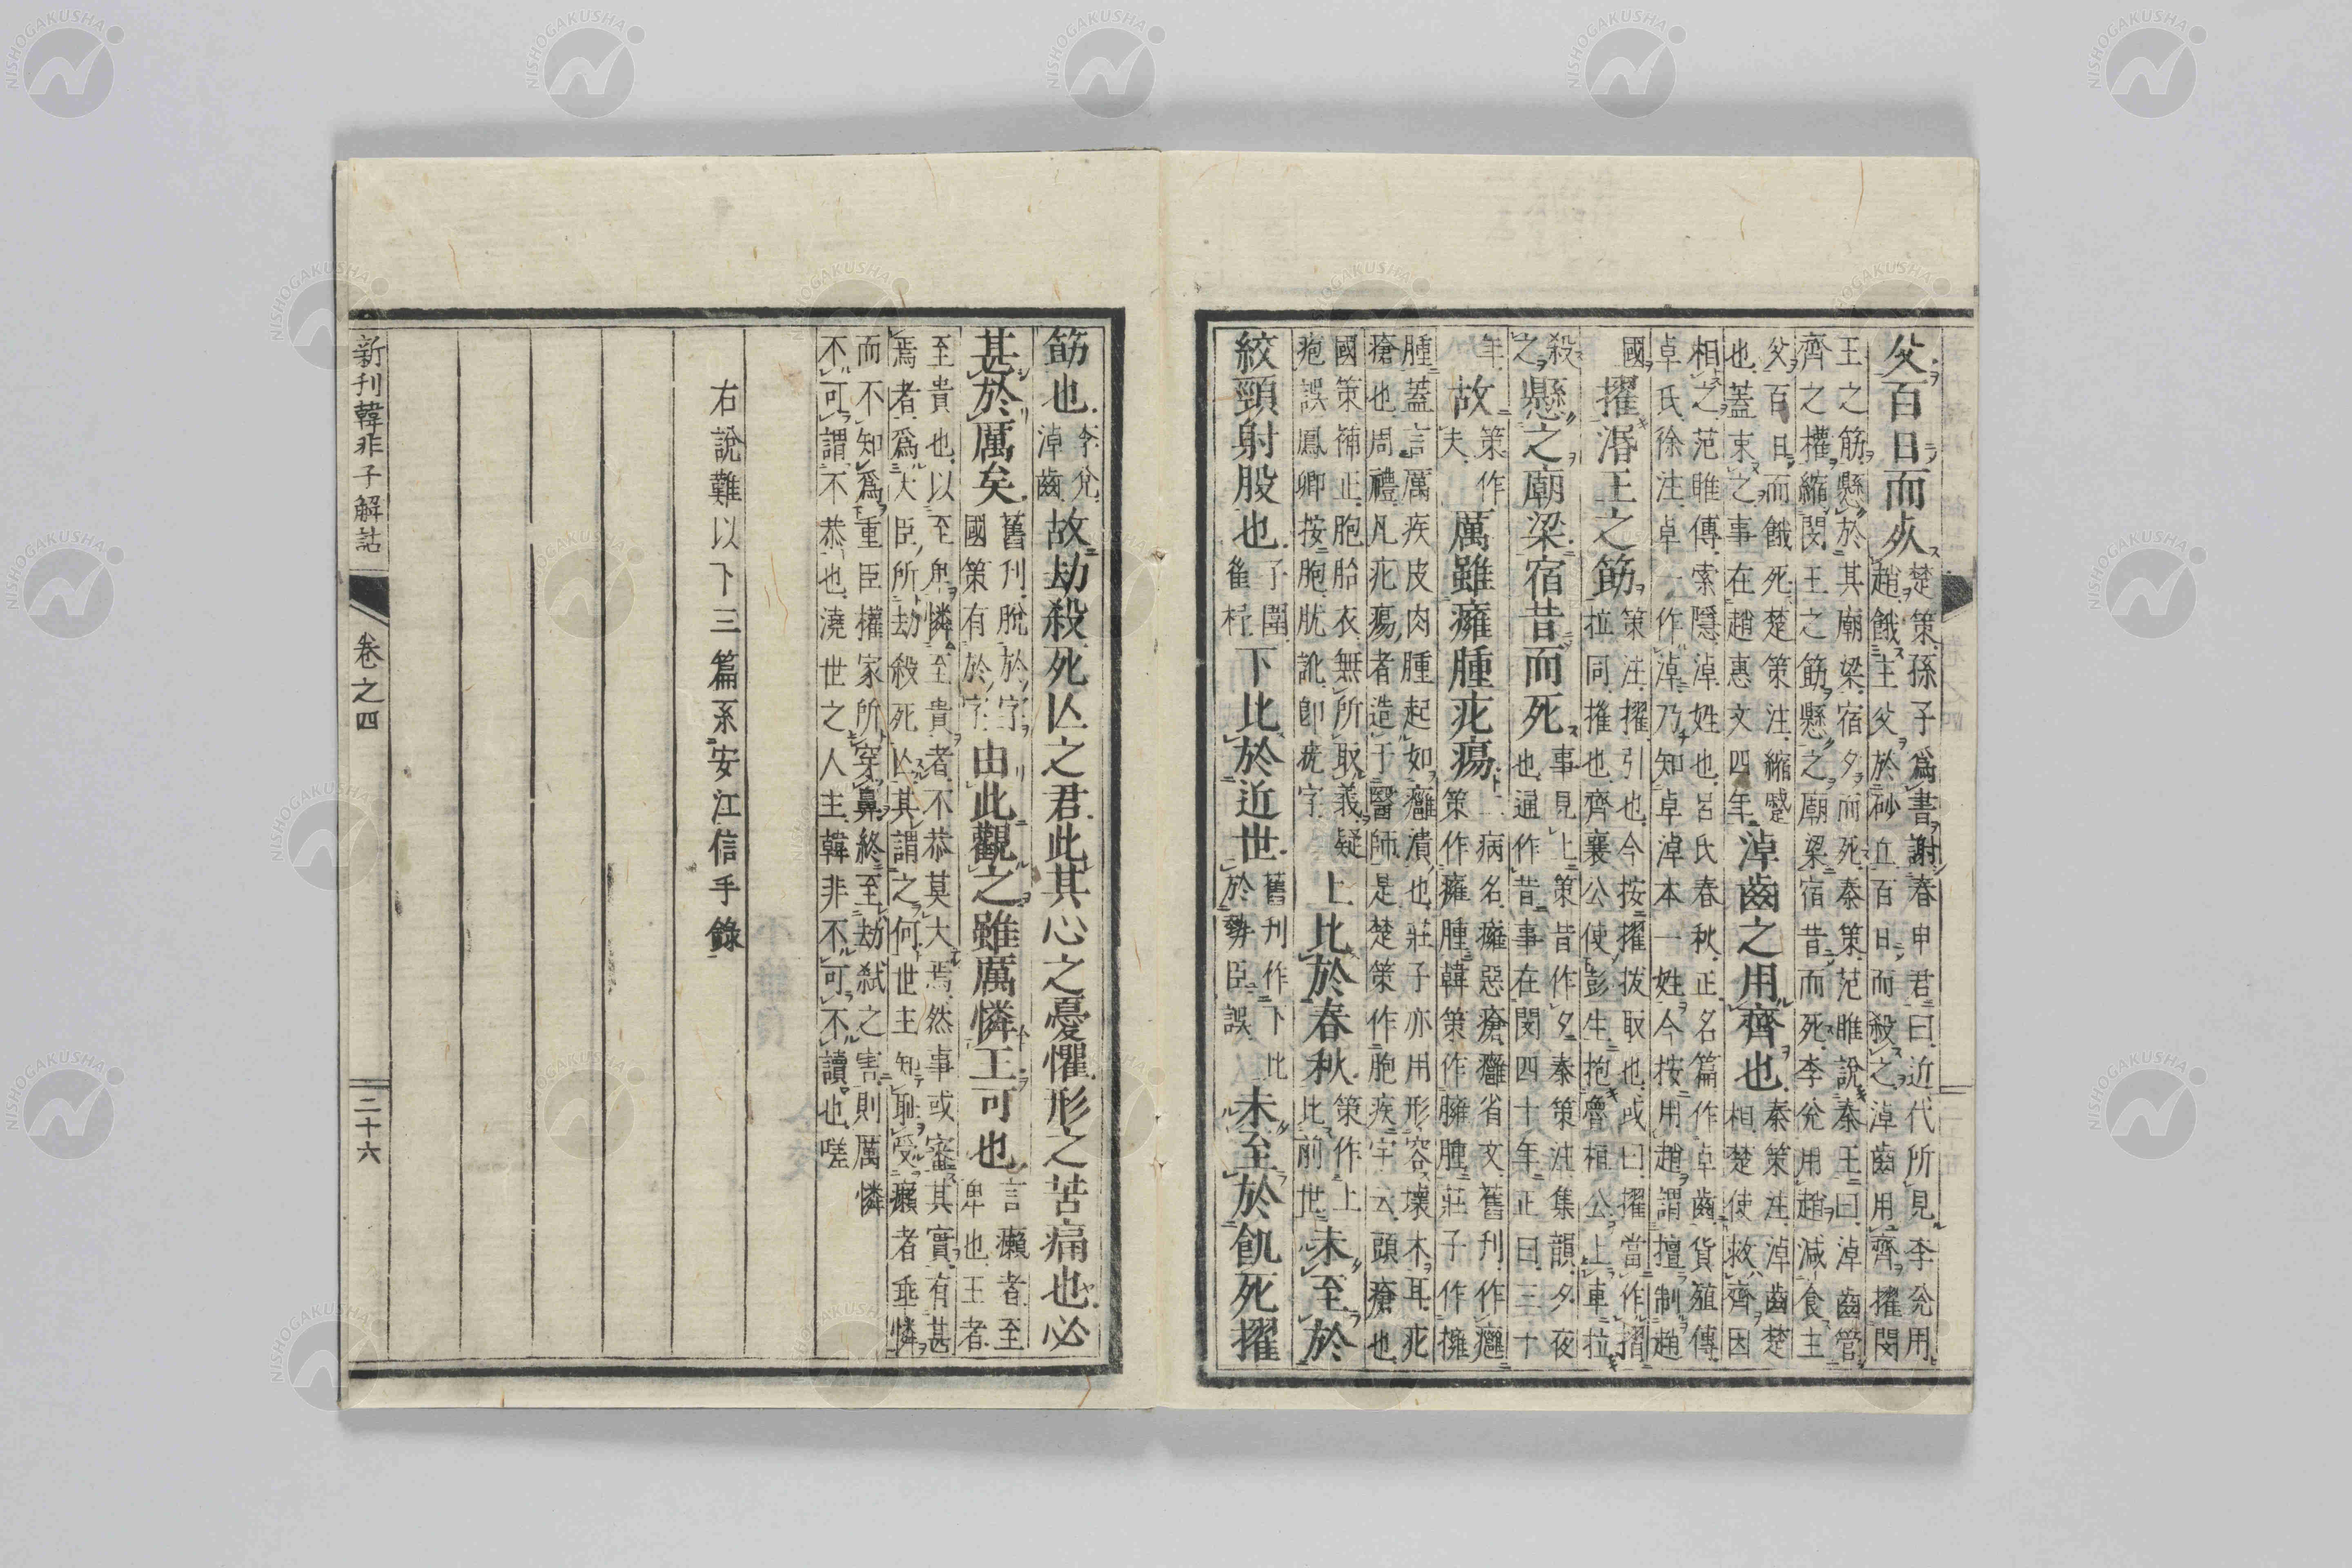 父百日而死楚策孫子爲書謝春申君曰近代所見李兌用
趙餓主父於砂丘百日而殺之淖齒用齊擢閔
王之筋懸於其廟梁宿夕而死秦策范雎說秦王曰淖齒管
齊之權縮閔王之筋懸之廟梁宿昔而死李兌用趙減食主
父百日而餓死楚策注縮蹙
也蓋束之事在趙惠文四年
淖齒之用齊也秦策注淖齒楚
相楚使救齊因
相之范雎傳索隱淖姓也呂氏春秋正名篇作卓齒貨殖傳
卓氏徐注卓一作淖乃知卓淖本一姓今按用趙謂擅制趙
國擢湣王之筋策注擢引也今按擢拔取也或曰擢當作摺
拉同摧也齊襄公使彭生抱魯桓公上車拉
殺之懸之廟梁宿昔而死事見上策昔作夕秦策注集韻夕夜
也通作昔事在閔四十年正曰三十
年故策作夫厲雖癰腫疕瘍上病名癰惡瘡癰省文舊刊作癰
策作癰腫韓策作臃腫莊子作擁
腫蓋言厲疾皮肉腫起如癰潰也莊子亦用形容壞木耳疕
瘡也周禮凡疕瘍者造于醫師是楚策作胞疾字云頭瘡也
國策補正胞胎衣無所取義疑
疱誤鳳卿按胞肬訛卽疣字
上比於春秋策作上比前世未至於
絞頸射股也子圍崔杼下比於近世舊刊作下比於勢臣誤未至於飢死擢
筋也李兌淖齒故劫殺死亾之君此其心之憂懼形之苦痛也必
甚於厲矣舊刊脫於字國策有於字由此觀之雖厲憐王可也言癩者至
卑也王者
至貴也以至卑憐至貴者不恭莫大焉然事或審其實有甚
焉者爲大臣所劫殺死亾其謂之何世主知耻受癩者垂憐
而不知爲重臣權家所穿鼻終至劫弑之害則厲憐
不可謂不恭也澆世之人主韓非不可不讀也嗟
右說難以下三篇系安江信手錄
新刊韓非子解詁 卷之四 二十六